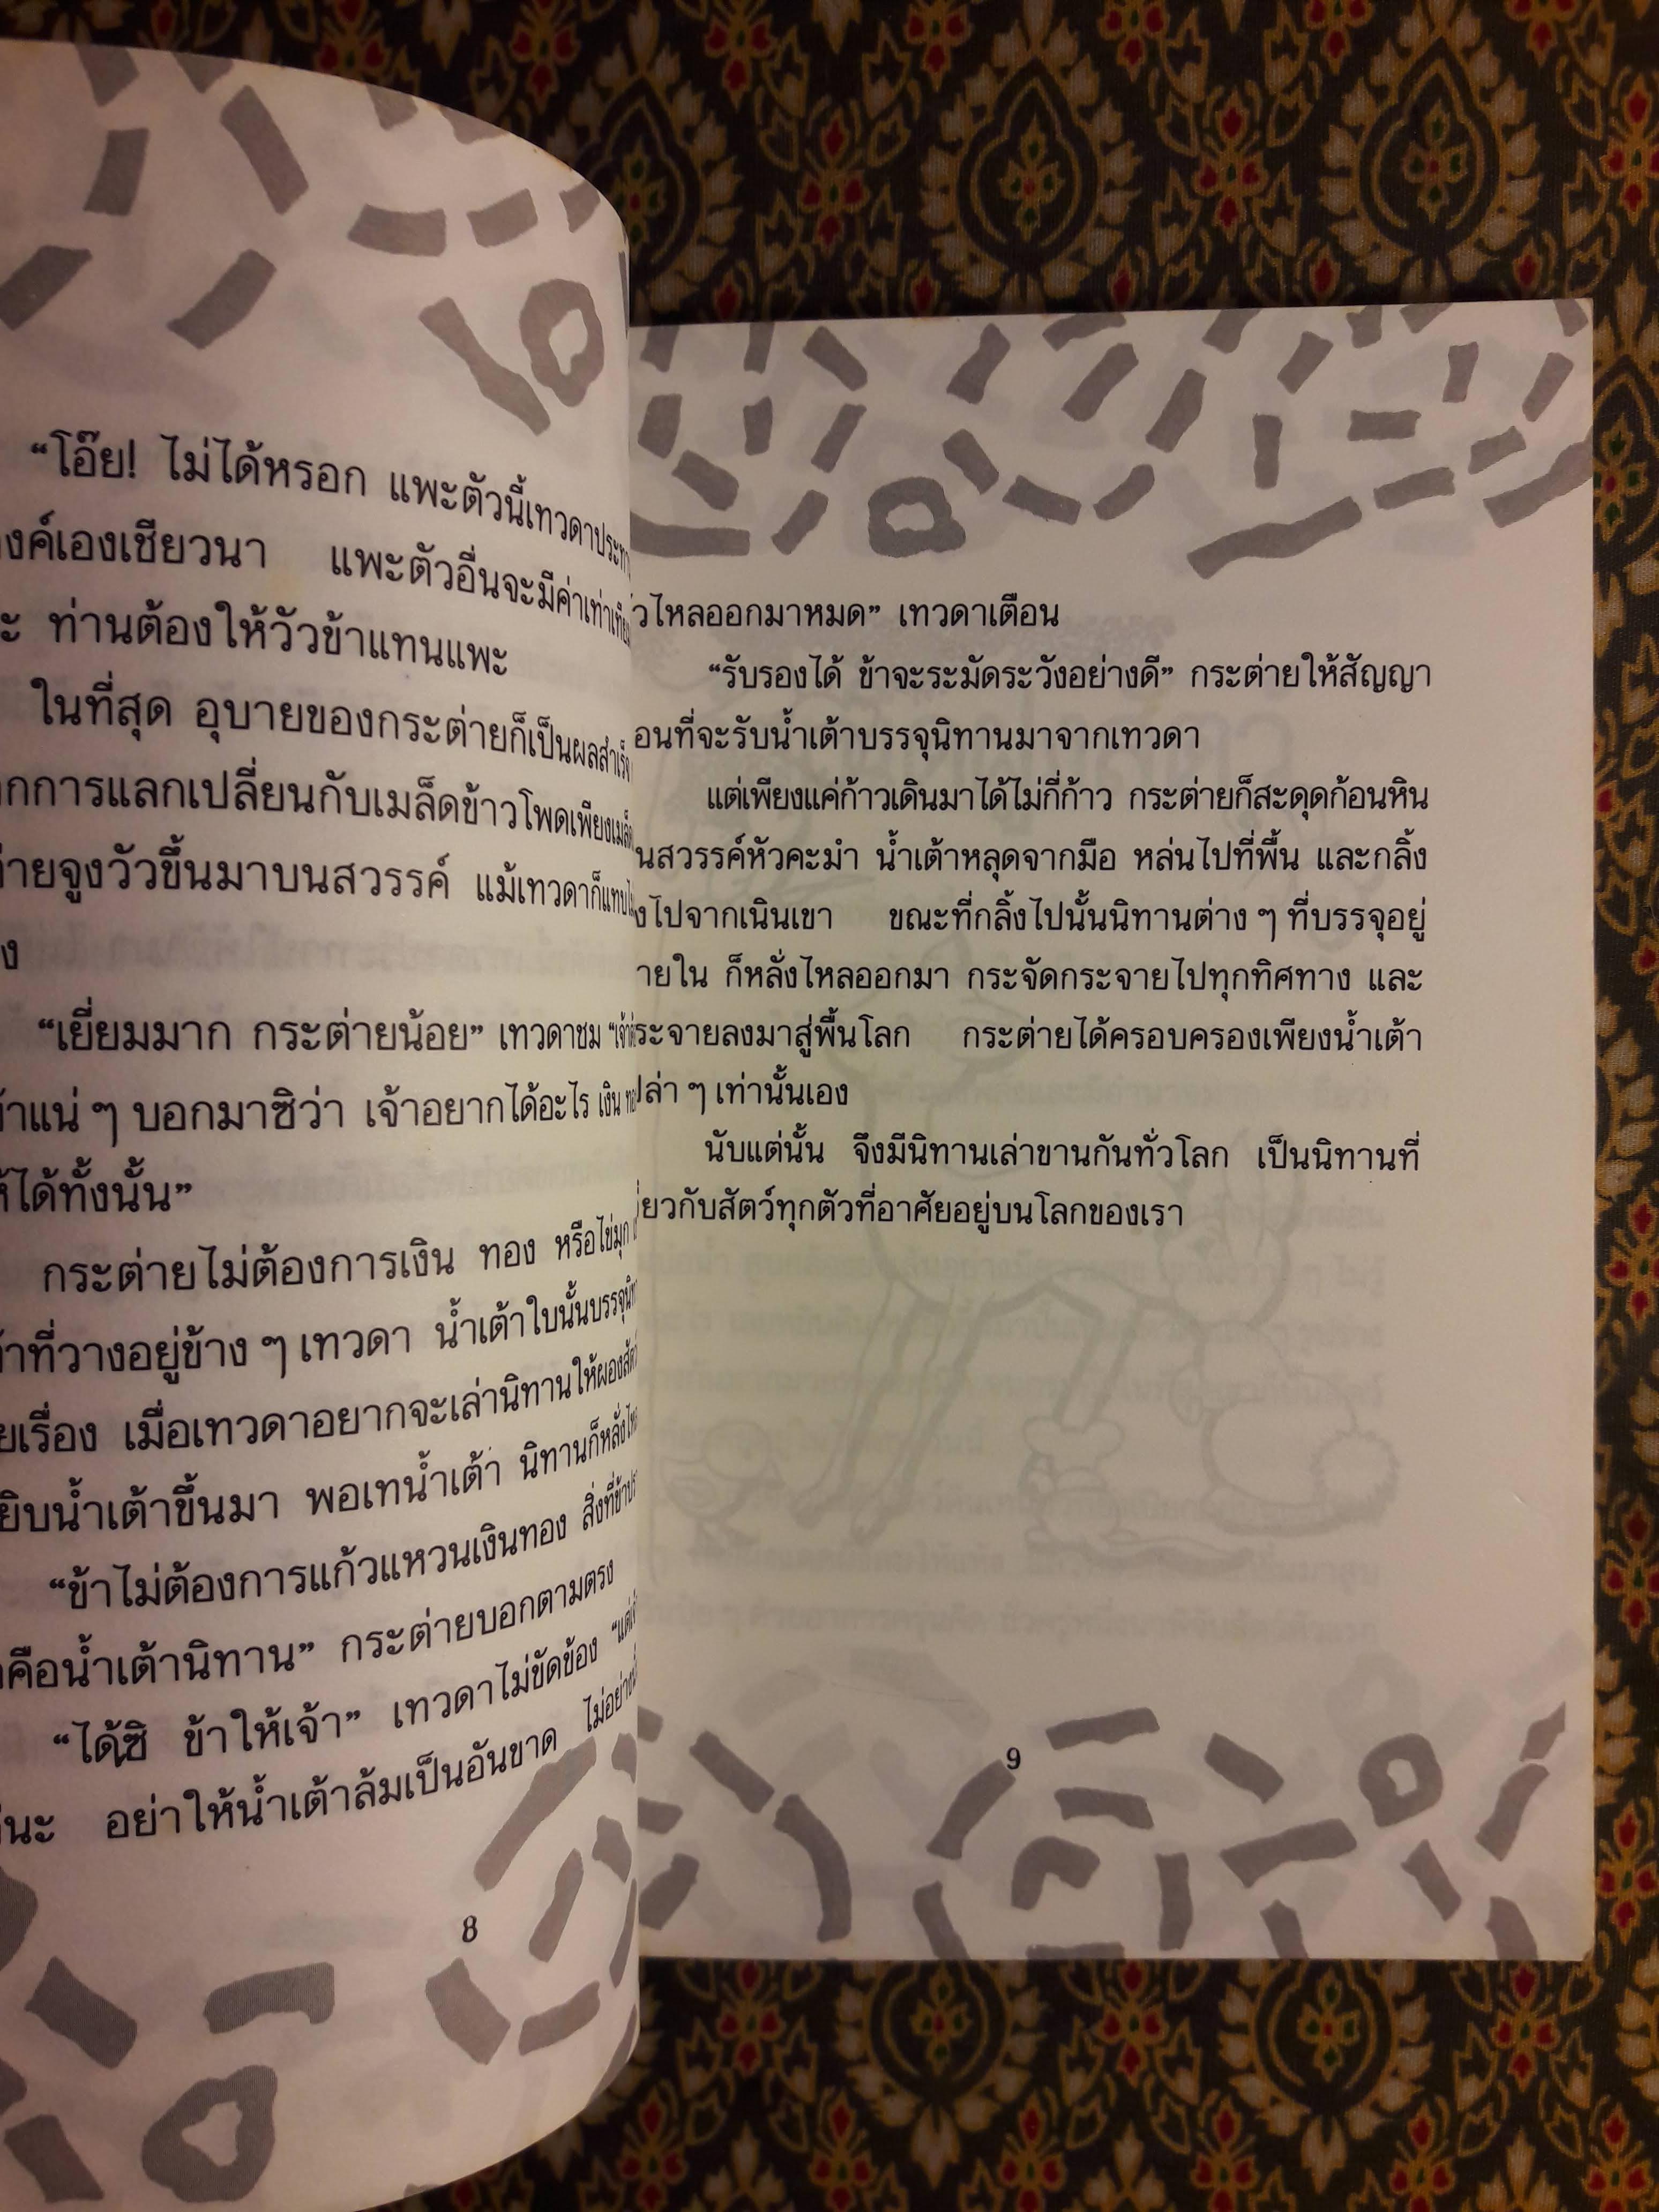 “โอ๊ย! ไม่ได้หรอก แพะตัวนี้เทวดา
แพะตัวอื่นจะมีค่าเท่า
ท่านต้องให้วัวข้าแทนแพะ
ในที่สุด อุบายของกระต่ายก็เป็นผล
การแลกเปลี่ยนกับเมล็ดข้าวโพดเพียง
จูงวัวขึ้นมาบนสวรรค์ แม้เทวดาก็แทบ
“เยี่ยมมาก กระต่ายน้อย” เทวดาชม
แน่ ๆ บอกมาซิว่า เจ้าอยากได้อะไร เงิน
ได้ทั้งนั้น”
กระต่ายไม่ต้องการเงิน ทอง หรือไข่มุก
ที่วางอยู่ข้าง ๆ เทวดา น้ำเต้าใบนั้นบรรจุ
เรื่อง เมื่อเทวดาอยากจะเล่านิทานให้ผอง
น้ำเต้าขึ้นมา พอเทน้ำเต้า นิทานก็หลั่ง
“ข้าไม่ต้องการแก้วแหวนเงินทอง สิ่งที่ข้า
คือน้ำเต้านิทาน” กระต่ายบอกตามตรง
“ได้ซิ ข้าให้เจ้า” เทวดาไม่ขัดข้อง
นะ อย่าให้น้ำเต้าล้มเป็นอันขาด
8
ไหลออกมาหมด” เทวดาเตือน
“รับรองได้ ข้าจะระมัดระวังอย่างดี” กระต่ายให้สัญญา
อนที่จะรับน้ำเต้าบรรจุนิทานมาจากเทวดา
แต่เพียงแค่ก้าวเดินมาได้ไม่กี่ก้าว กระต่ายก็สะดุดก้อนหิน
นสวรรค์หัวคะมำ น้ำเต้าหลุดจากมือ หล่นไปที่พื้น และกลิ้ง
ไปจากเนินเขา ขณะที่กลิ้งไปนั้นนิทานต่าง ๆ ที่บรรจุอยู่
ายใน ก็หลั่งไหลออกมา กระจัดกระจายไปทุกทิศทาง และ
ระจายลงมาสู่พื้นโลก กระต่ายได้ครอบครองเพียงน้ำเต้า
ล่า ๆ เท่านั้นเอง
นับแต่นั้น จึงมีนิทานเล่าขานกันทั่วโลก เป็นนิทานที่
ยวกับสัตว์ทุกตัวที่อาศัยอยู่บนโลกของเรา
9